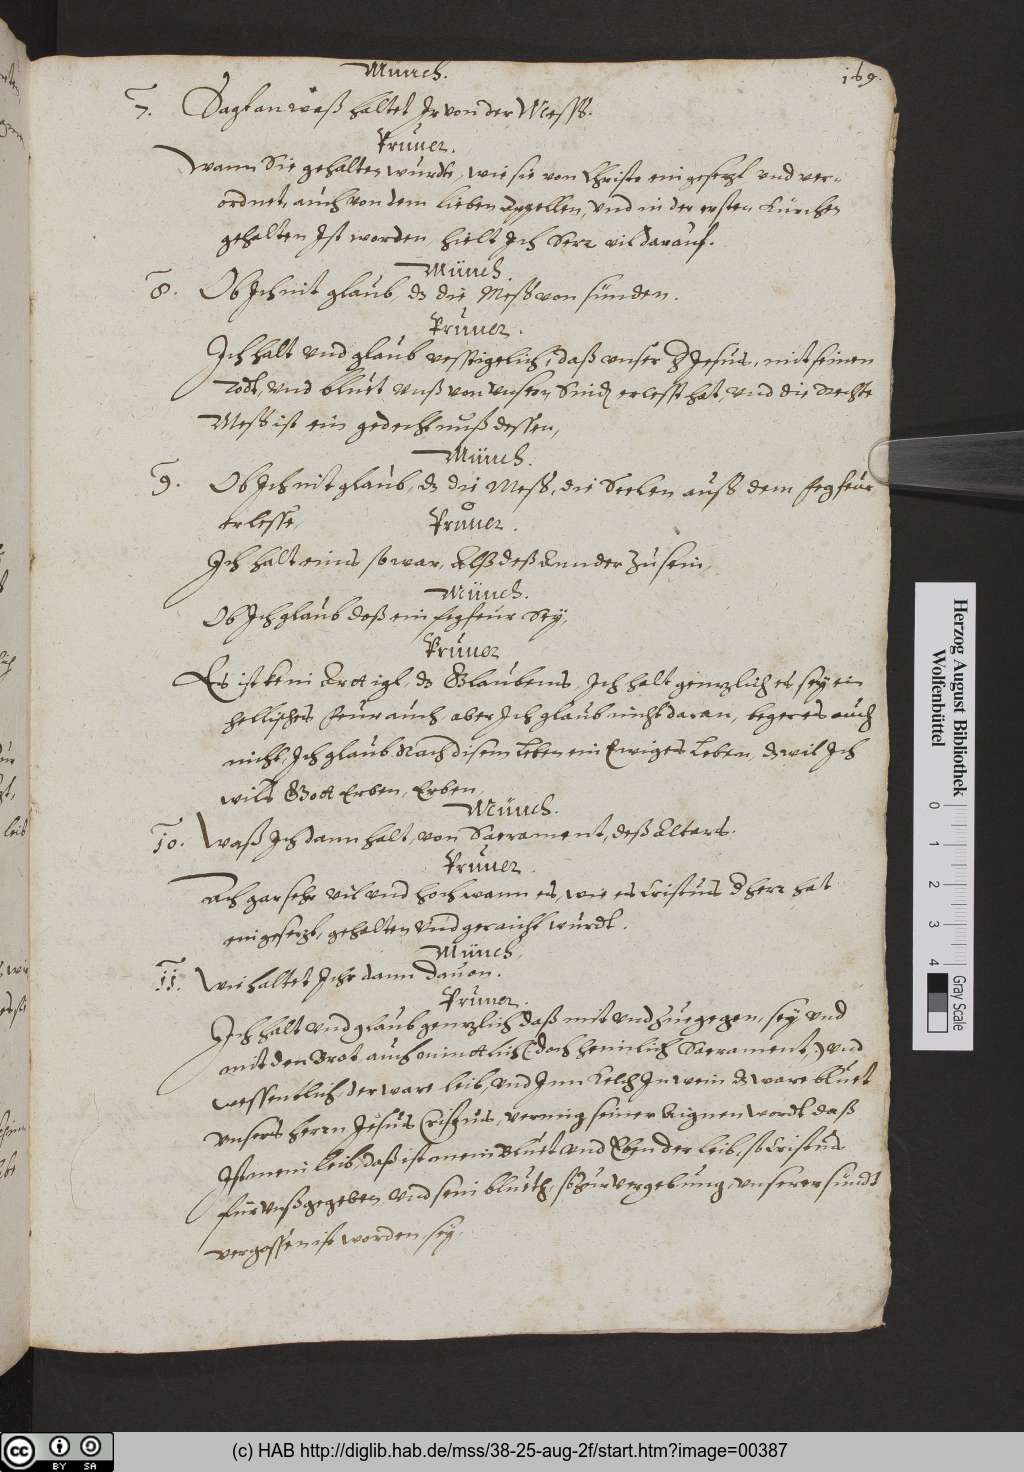 169.
Münch.
7. Sagt an waß haltet Ir von der Messß.
Pruner.
Wann Sie gehalten wurde, wie sie von Christo eingesetzt vnd ver-
ordnet, auch von dem lieben Appostellen, vnd in der ersten Kürchen
gehalten Ist worden, hielt Ich Serr vil darauf.
Münch.
8. Ob Ich nit glaub, dz die Messß von sünden.
Pruner.
Ich halt vnd glaub vestigelich, daß vnser H Jesus, mit seinen
Todt, vnd bluet vnß von vnsern Sünd erlesst hat, vnd die Rechte
Messß ist ein gedechtnuß dessen,
Münch.
9. Ob Ich nit glaub, dz die Messß, die Seelen auß dem fegfeur
erlesse,
Pruner.
Ich halt eins so war, Alß deß Annder zu sein,
Münch.
Ob Ich glaub daß ein fegfeur Sey,
Pruner
Es ist kein Arttigl, dz Glaubens, Ich halt gentzlich es sey ein
hellisches feur auch aber Ich glaub nicht daran, beger es auch
nicht, Ich glaub Nach disem Leben ein Ewiges Leben, dz wil Ich
wils Gott Erben, Erben,
Münch.
10. Waß Ich dann halt, von Sacrament, deß Altars.
Pruner.
Ach gar sehr vil vnd hoch wann es, wie es Cristus d herr hat
eingesetzt, gehalten vnd geraicht wurdt.
Münch.
11. Wie haltet Ihr dann dauon.
Pruner.
Ich halt vnd glaub gentzlich daß mit vnd zuegegen, sey vnd
mit den Brot, auch (doch heimlich Sacrament) vnd
wessentlich, der ware leib, vnd Inn Kelch In wein dz ware bluet
vnsers herrn Jesus Cristus, vermig seiner Aignen wordt daß
Ist mein leib, daß ist mein Bluet vnd Eben der leib, so Cristus
für vnß gegeben, vnd sein blueth, so zur vergebung, vnserer sündt
vergossen ist worden sey.
Herzog August Bibliothek
Wolfenbüttel
0 1 2 3 4
Gray Scale
cc BY SA
(c) HAB http://diglib.hab.de/mss/38-25-aug-2f/start.htm?image=00387